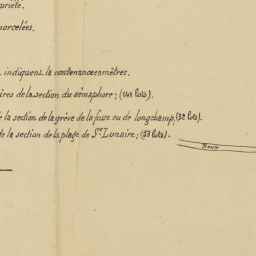 priété.
morcelées.
indiquent la contenance en mètres.
ires de la section du sémaphore; (141 lots).
e la section de la grève de la fosse ou de longchamp, (32 lots).
de la section de la plage de St Lunaire; (53 lots).